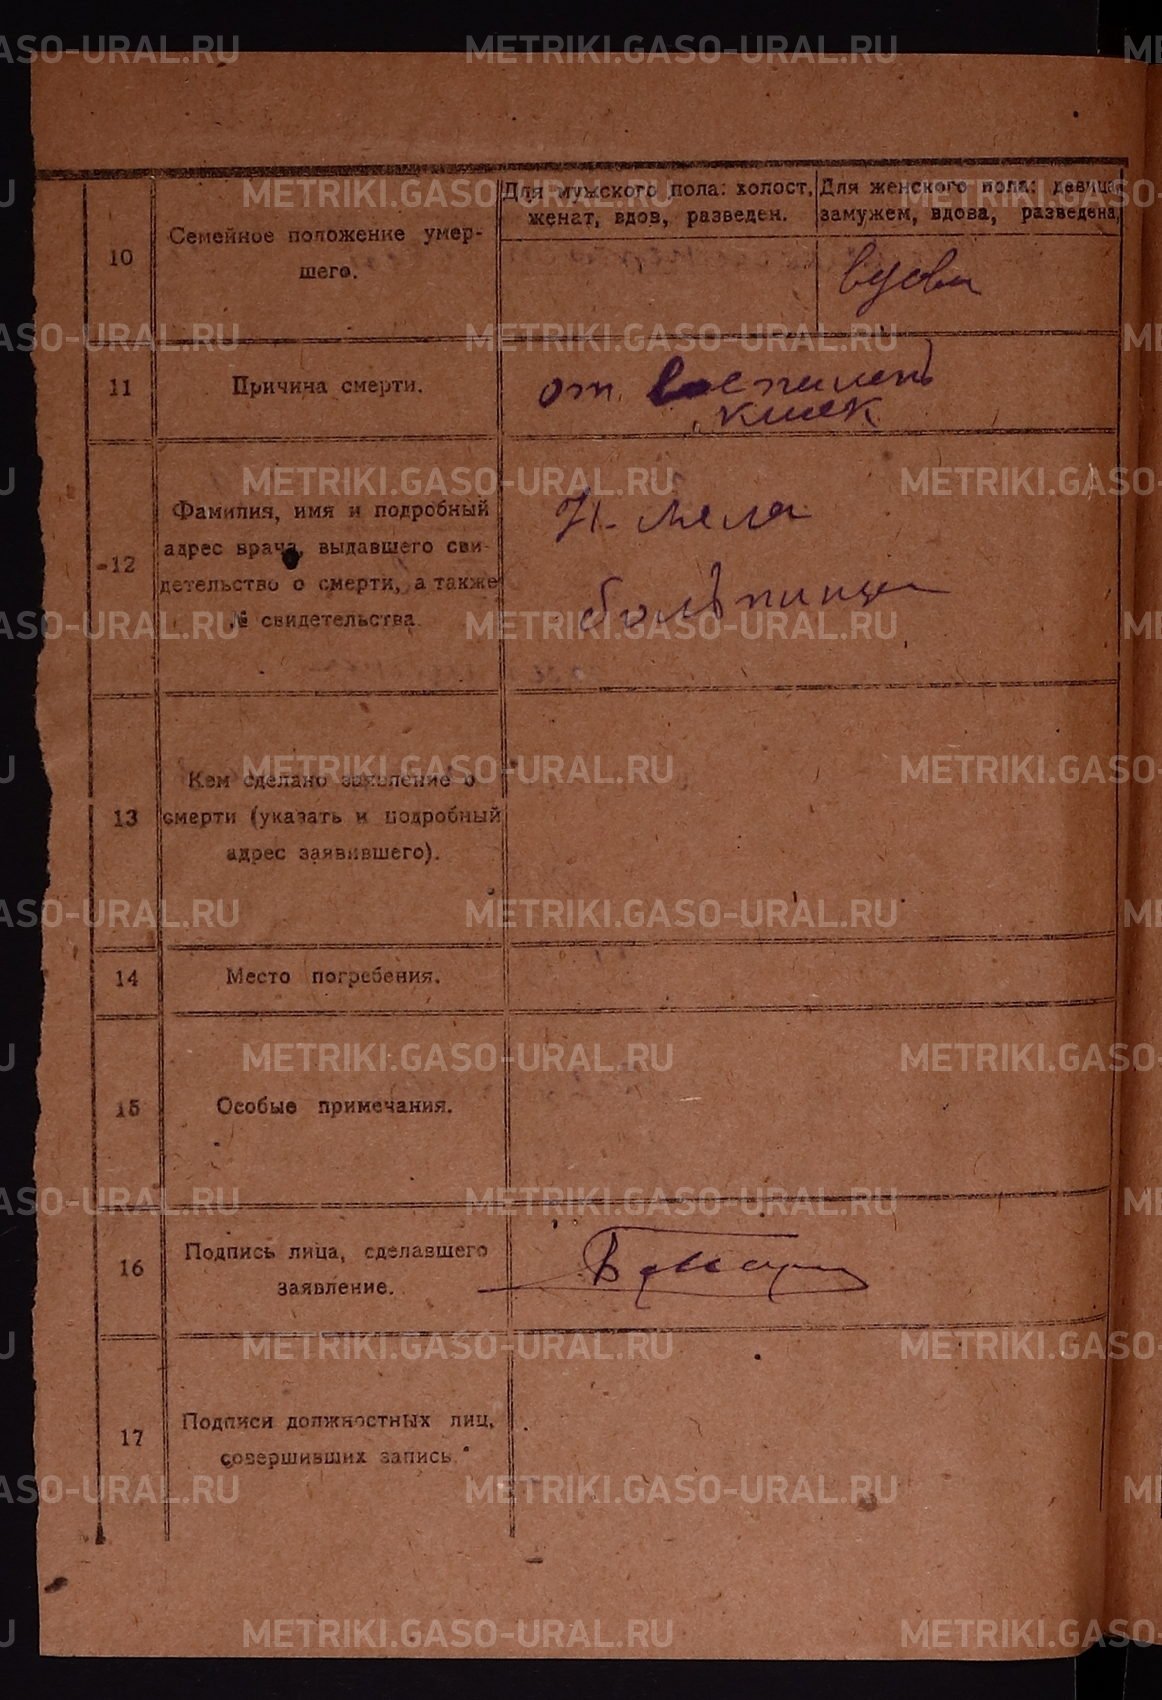 Для мужского пола: холост, женат, вдов, разведен.
Для женского пола: девица, замужем, вдова, разведена,
10
Семейное положение умер-
шего.
вдова
11
Причина смерти.
от
кишек
12
Фамилия, имя и подробный
адрес врача, выдавшего сви-
детельство о смерти, а также
№ свидетельства.
больница
13
Кем сделано заявление о
смерти (указать и подробный
адрес заявившего).
14
Место погребения.
15
Особые примечания.
16
Подпись лица, сделавшего
заявление.
17
Подписи должностных лиц,
совершивших запись.
METRIKI.GASO-URAL.RU